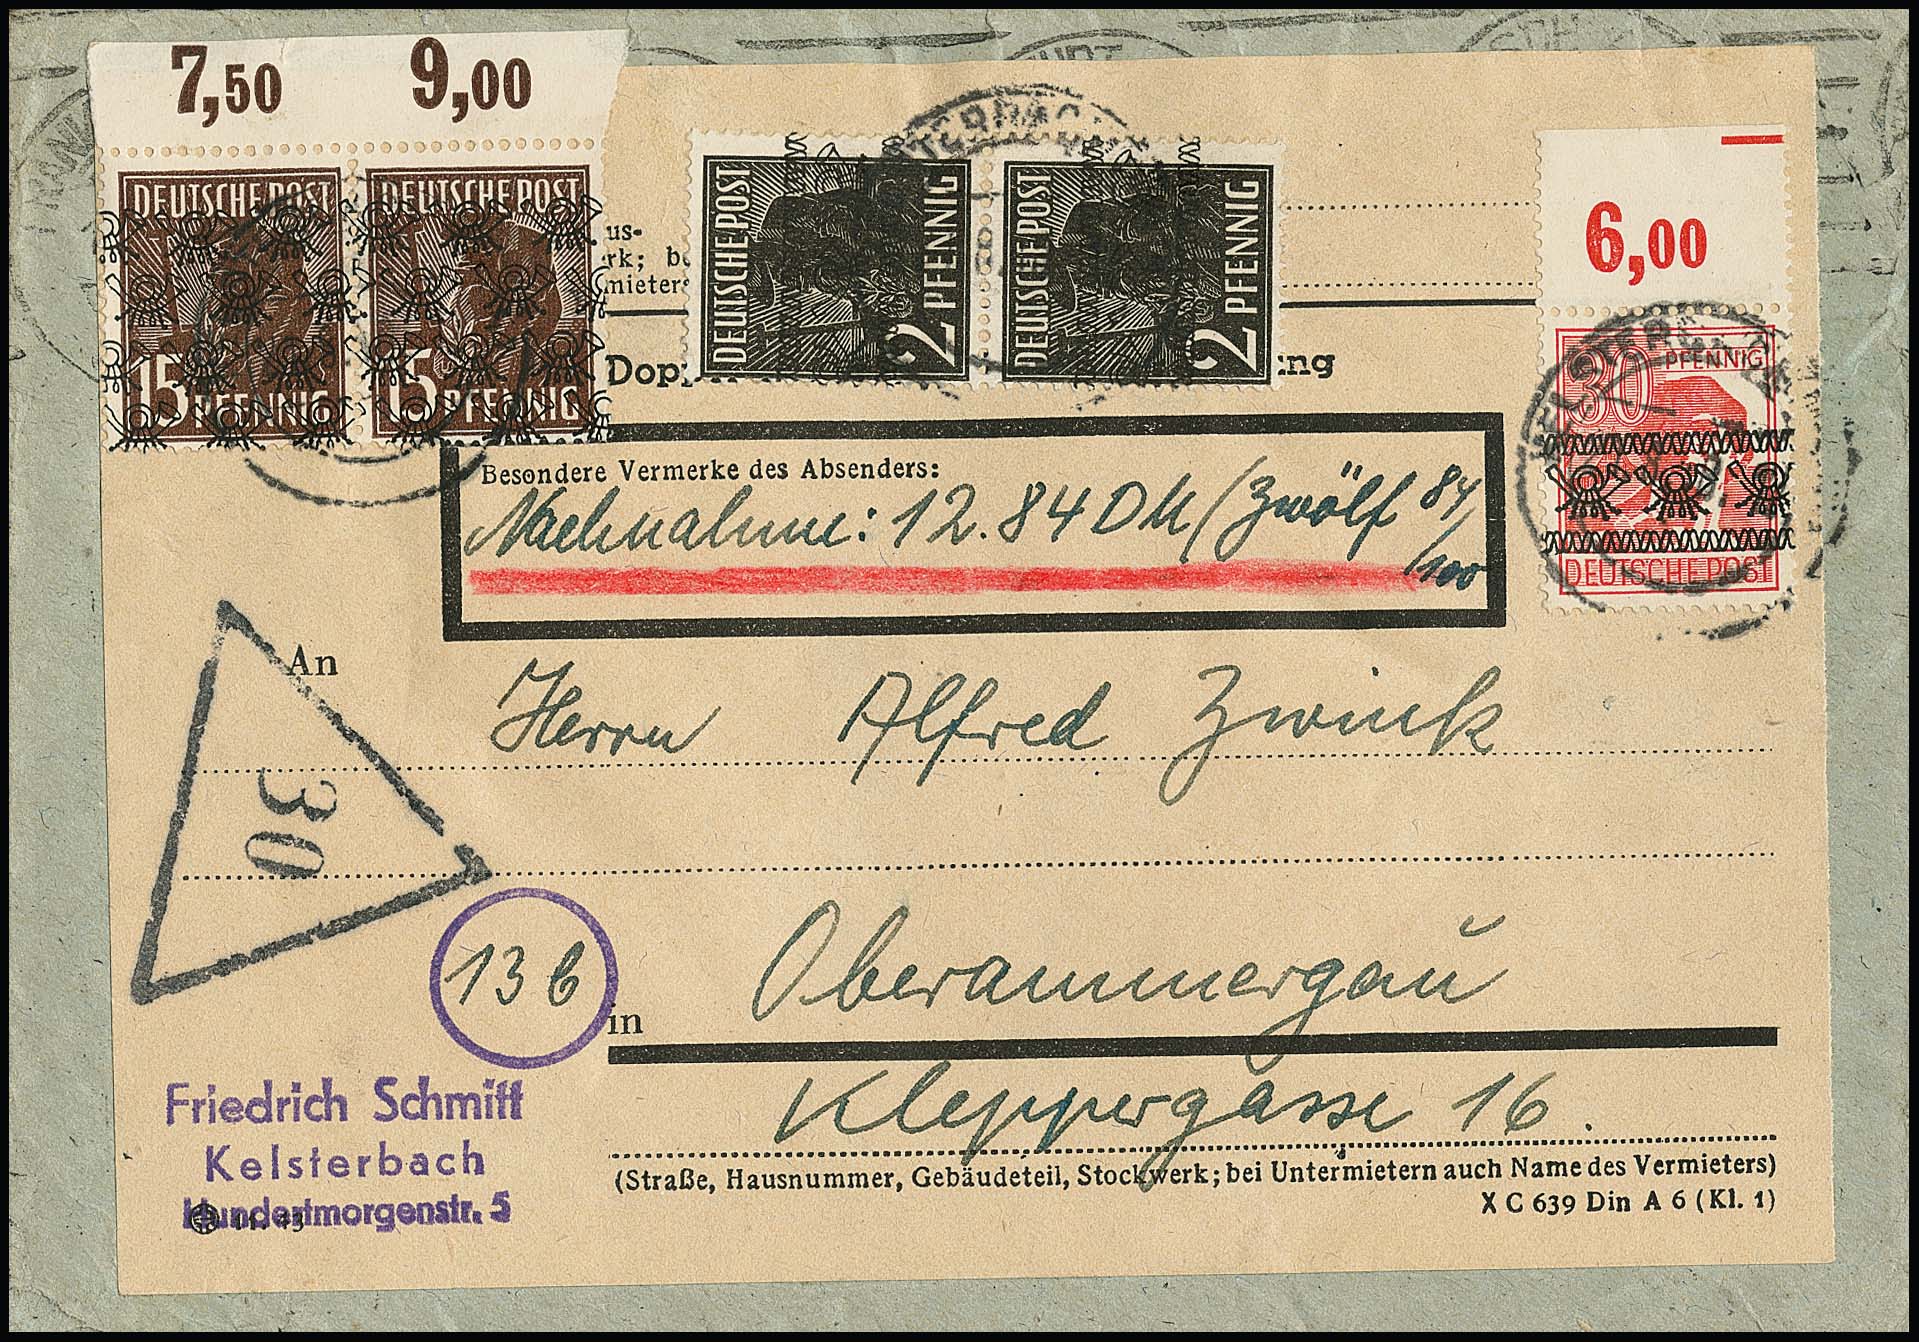 7,50 9,00
DEUTSCHE POST DEUTSCHE POST
15 PFENNIG 15 PFENNIG
DEUTSCHE POST 2 PFENNIG
DEUTSCHE POST 2 PFENNIG
6,00
30 PFENNIG
DEUTSCHE POST
us-
rk; be
mieters
Dopp ng
Besondere Vermerke des Absenders:
Nachnahme: 12.84 DM (Zwölf 84/100
An
Herrn Alfred Zwink
30
13b
in Oberammergau
Kleppergasse 16.
(Straße, Hausnummer, Gebäudeteil, Stockwerk; bei Untermietern auch Name des Vermieters)
X C 639 Din A 6 (Kl. 1)
Friedrich Schmitt
Kelsterbach
Hundertmorgenstr. 5